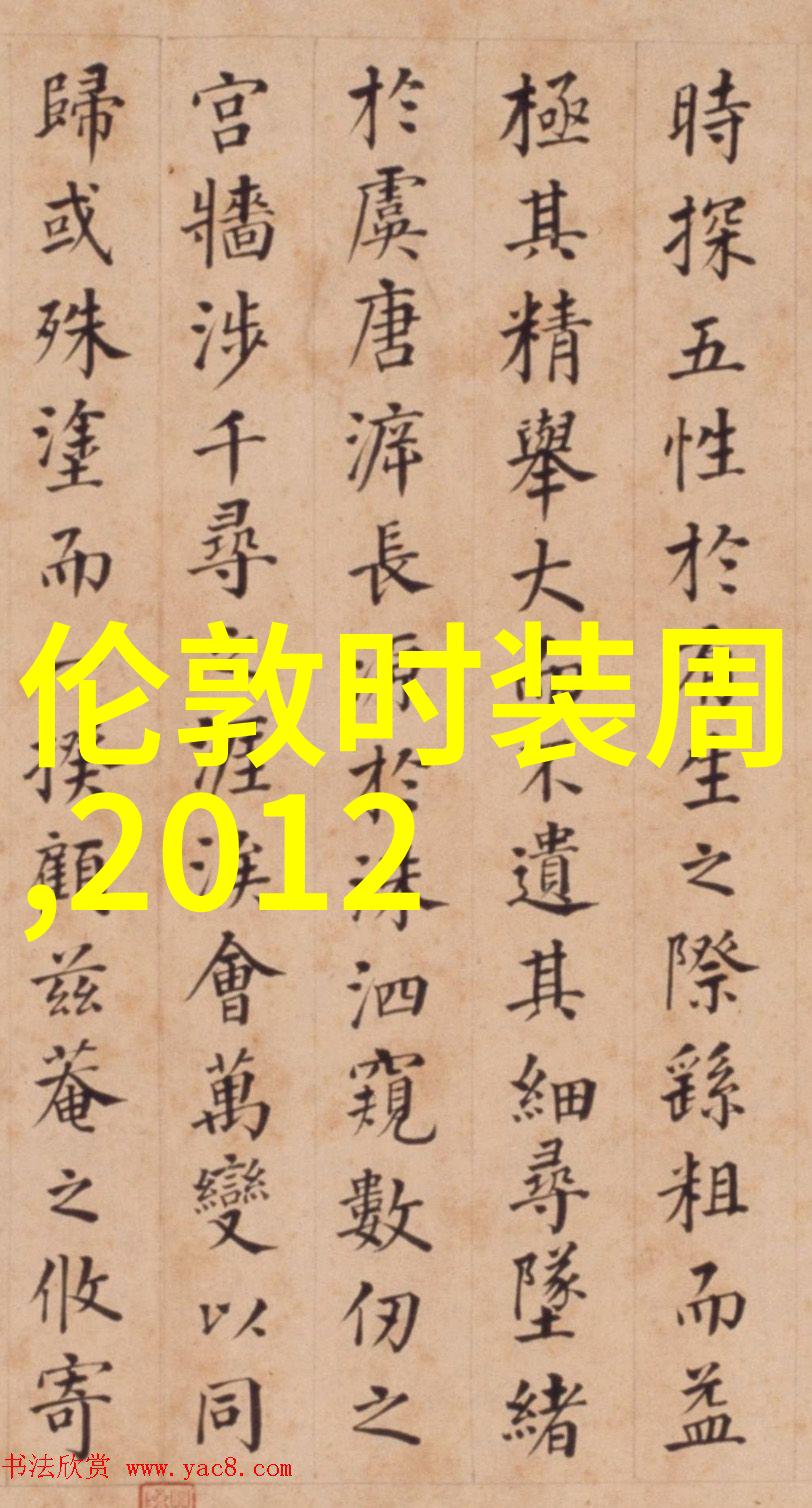 時探五性於有生之際繇粗而益
極其精舉大而不遺其細尋墜緒
於虞唐泝長源於洙泗窺數仞之
宮牆涉千尋之涯涘會萬變以同
歸或殊塗而一揆顧茲菴之攸寄
伦敦时装周
,2012
书法欣赏 www.yac8.com